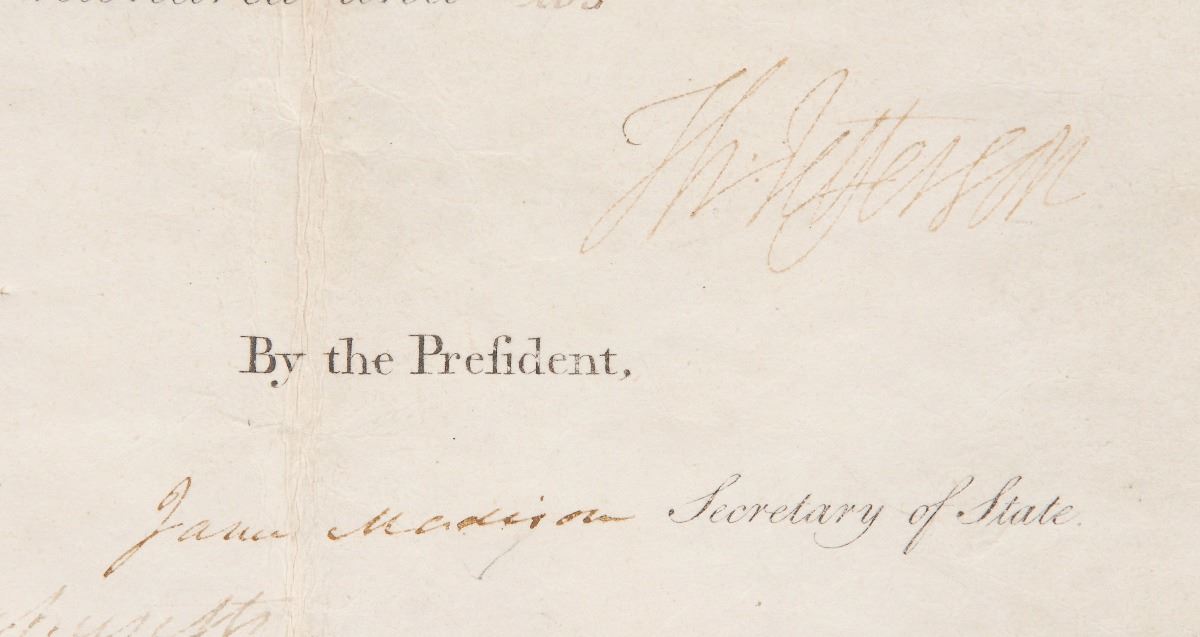 Th: Jefferson
By the Preſident,
James Madison Secretary of State.